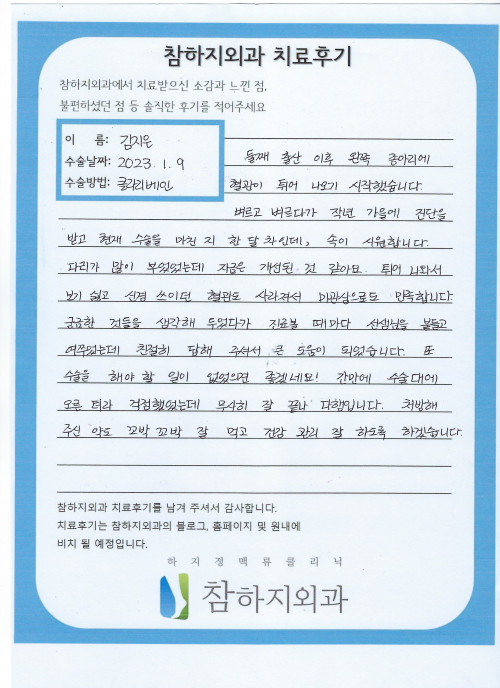 참하지외과 치료후기
참하지외과에서 치료받으신 소감과 느낀 점,
불편하셨던 점 등 솔직한 후기를 적어주세요
이 름: 김지은
수술날짜: 2023. 1. 9
수술방법: 클라리베인
둘째 출산 이후 왼쪽 종아리에
혈관이 튀어 나오기 시작했습니다.
벼르고 벼르다가 작년 가을에 진단을
받고 현재 수술을 마친 지 한 달 차인데, 속이 시원합니다.
다리가 많이 부었었는데 지금은 개선된 것 같아요. 튀어 나와서
보기 싫고 신경 쓰이던 혈관도 사라져서 미관상으로도 만족합니다.
궁금한 것들을 생각해 두었다가 진료볼 때마다 선생님을 붙들고
여쭈었는데 친절히 답해 주셔서 큰 도움이 되었습니다. 또
수술을 해야 할 일이 없었으면 좋겠네요! 간만에 수술대에
오른 터라 걱정했었는데 무사히 잘 끝나 다행입니다. 처방해
주신 약도 꼬박 꼬박 잘 먹고 건강 관리 잘 하도록 하겠습니다.
참하지외과 치료후기를 남겨 주셔서 감사합니다.
치료후기는 참하지외과의 블로그, 홈페이지 및 원내에
비치 될 예정입니다.
하지정맥류클리닉
참하지외과